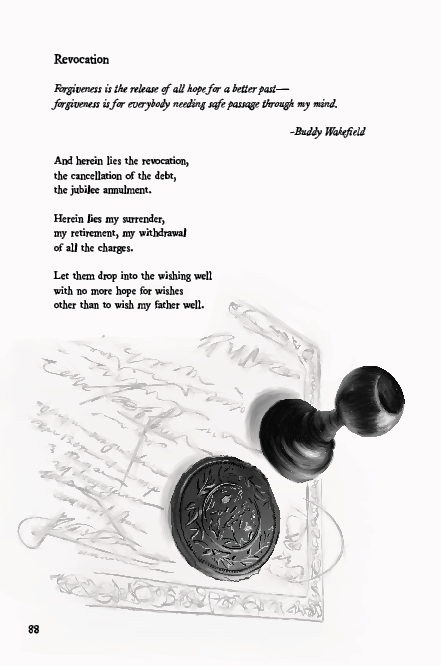 Revocation
Forgiveness is the release of all hope for a better past—
forgiveness is for everybody needing safe passage through my mind.
-Buddy Wakefield
And herein lies the revocation,
the cancellation of the debt,
the jubilee annulment.
Herein lies my surrender,
my retirement, my withdrawal
of all the charges.
Let them drop into the wishing well
with no more hope for wishes
other than to wish my father well.
88